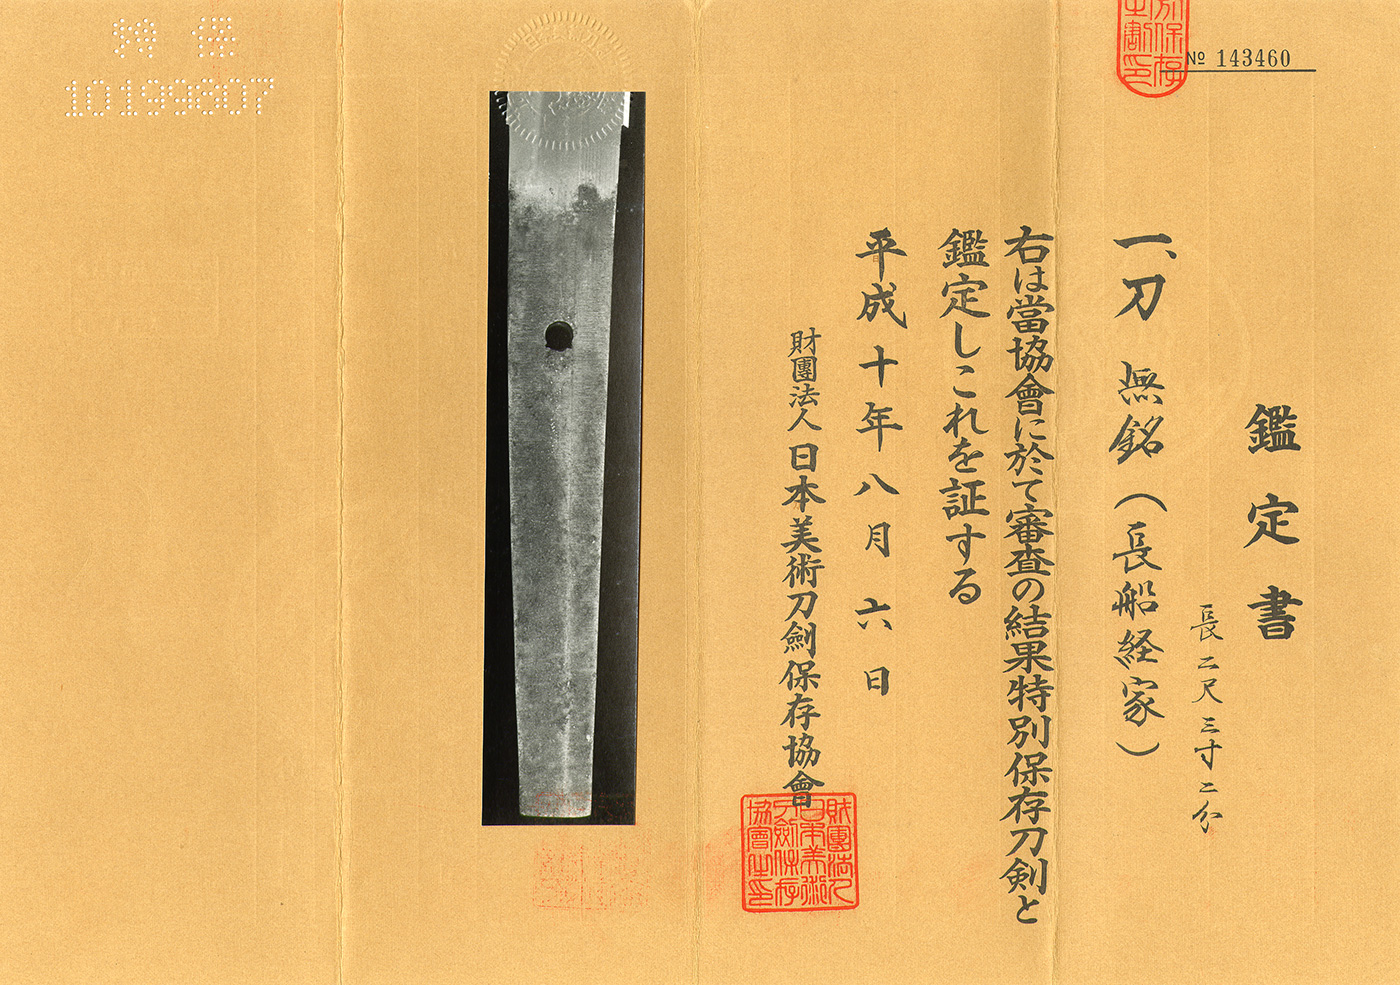 鑑定書
長二尺三寸二分
一、刀 無銘（長船経家）
右は當協會に於て審査の結果特別保存刀剣と
鑑定しこれを証する
平成十年八月六日
財團法人日本美術刀劍保存協會
財團法人
日本美術
刀劍保存
協會之印
№ 143460
特保
10199807